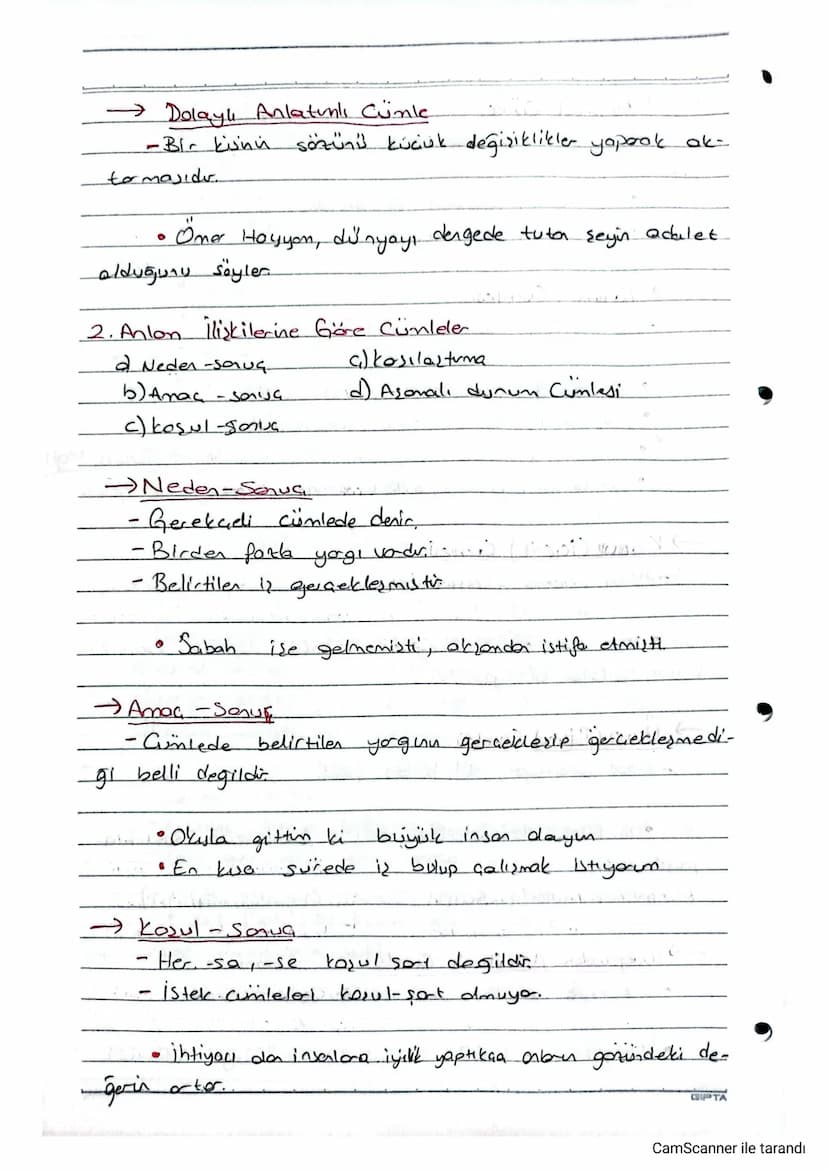 → Dolaylı Anlatımlı Cümle
- Bir kişinin sözünü küçük değişiklikler yaparak ak-
tarmasıdır.
• Ömer Hayyam, dünyayı dengede tutan şeyin adalet
olduğunu söyler
2. Anlam İlişkilerine Göre Cümleler
a) Neden-sonuç
ç) Karşılaştırma
b) Amaç - sonuç
d) Aşamalı durum Cümlesi
c) Koşul-sonuç
→ Neden-Sonuç
- Gerekçeli cümlede denir.
- Birden fazla yargı vardır.
- Belirtilen iş gerçekleşmiştir
• Sabah işe gelmemişti, akşamdan istifa etmişti.
→ Amaç - Sonuç
- Cümlede belirtilen yargının gerçekleşip gerçekleşmedi-
ği belli değildir
• Okula gittim ki büyük insan olayım
• En kısa sürede iş bulup çalışmak istiyorum
→ Koşul - Sonuç
- Her -sa, -se koşul şart değildir.
- İstek cümleleri koşul-şart olmuyor.
• İhtiyacı olan insanlara iyilik yaptıkça onların gözündeki de-
ğerin artar.
GIPTA
CamScanner ile tarandı